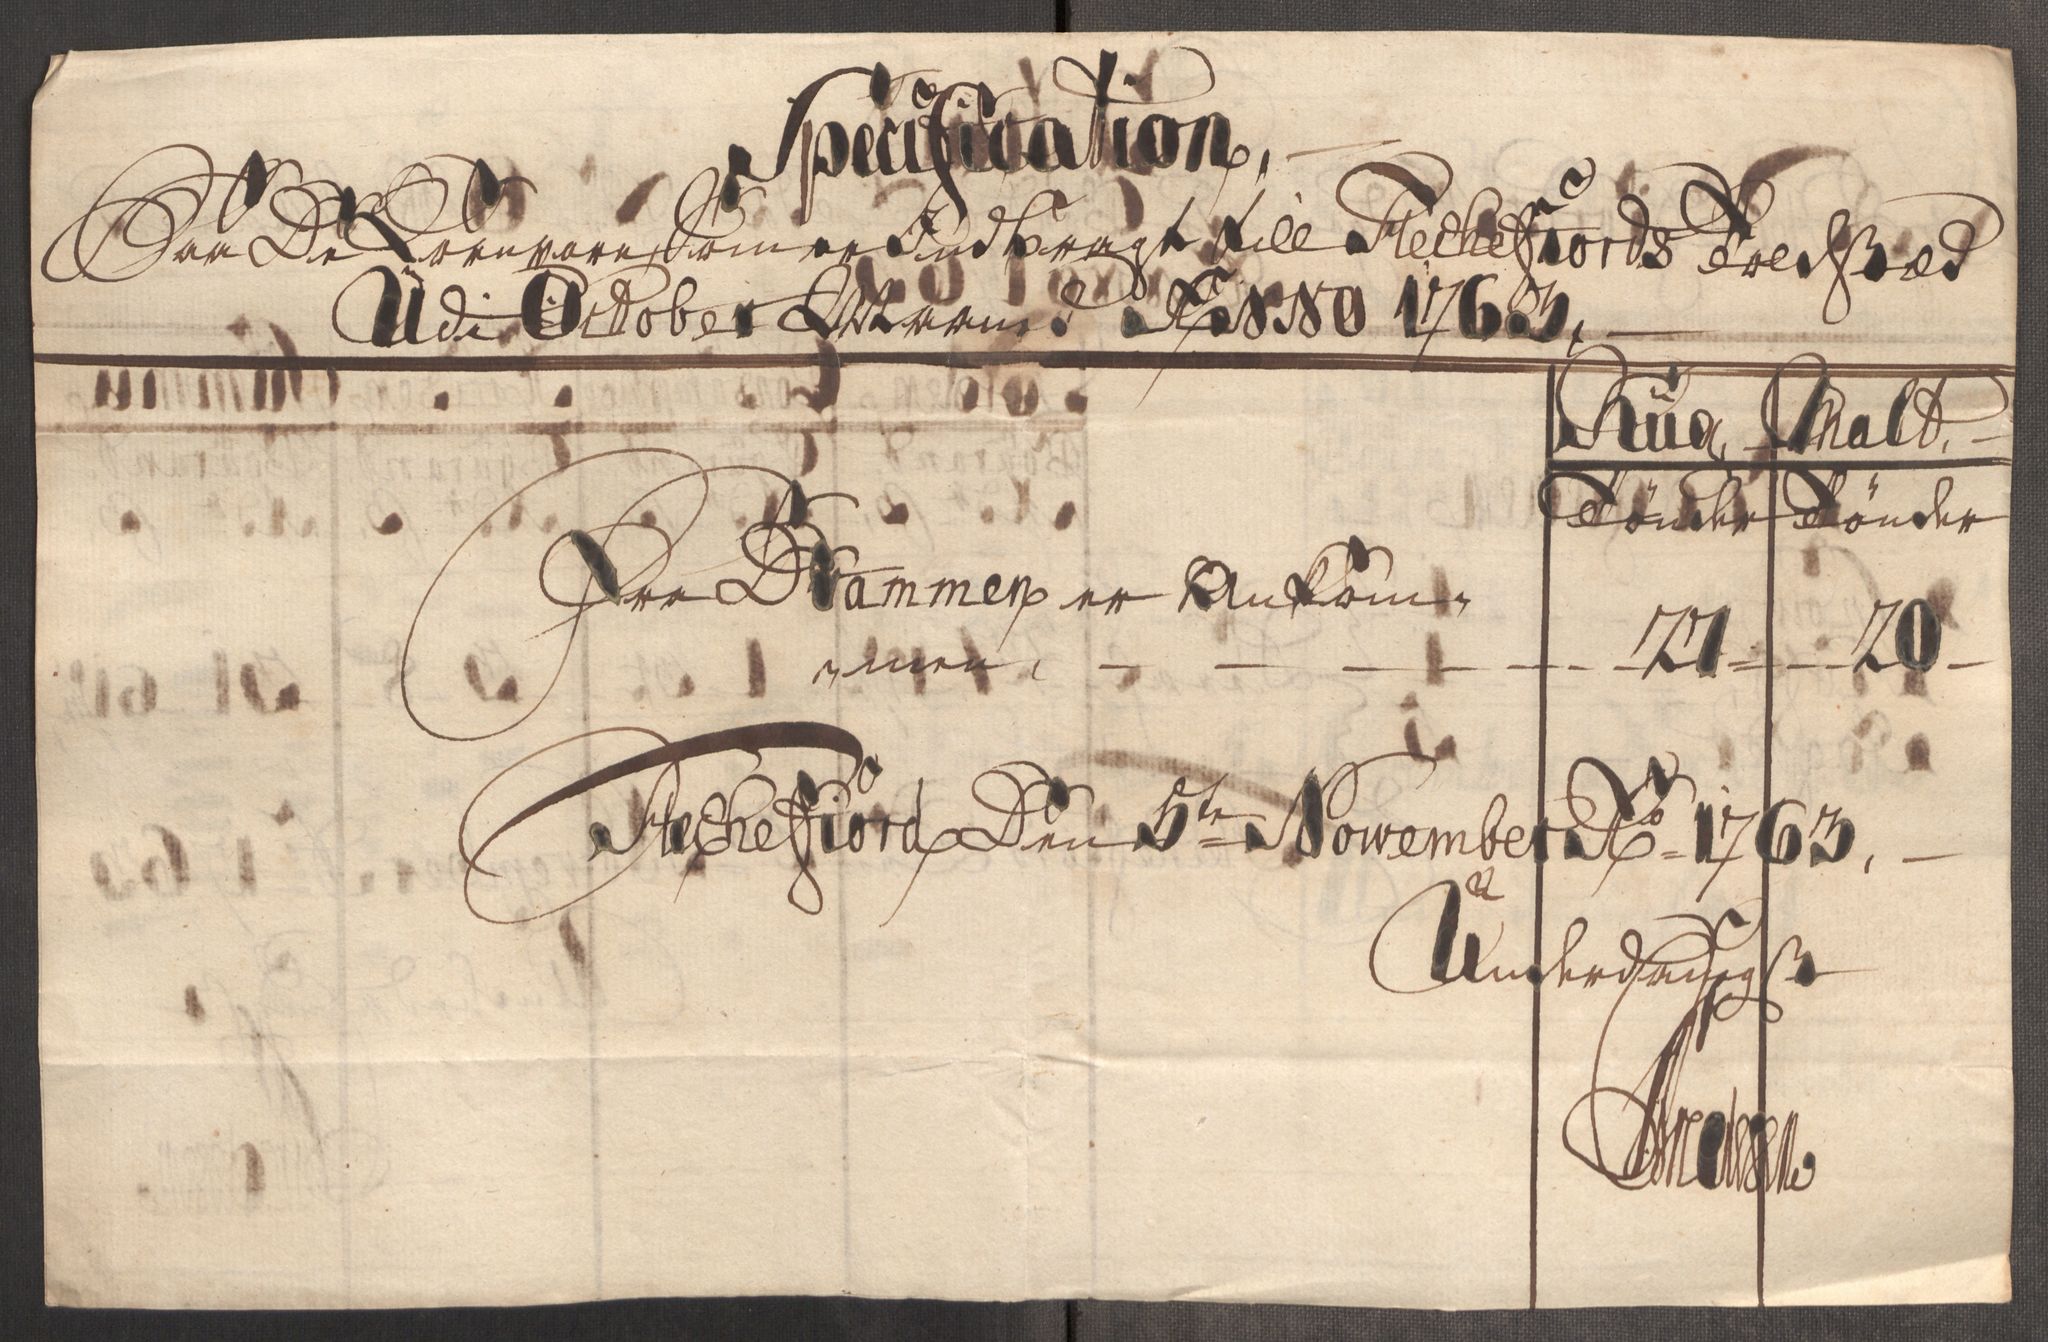 Specification,
Paa De Kornvare som er Indbragt till Flechefiords Tredsted
Udi October Maaned Anno 1763,
Rug, Malt,
Tönder Tönder
Fra Drammen er Ankom-
men, 121 20
Flechefiord Den 5te Nowember Ao 1763,
Underdanigst